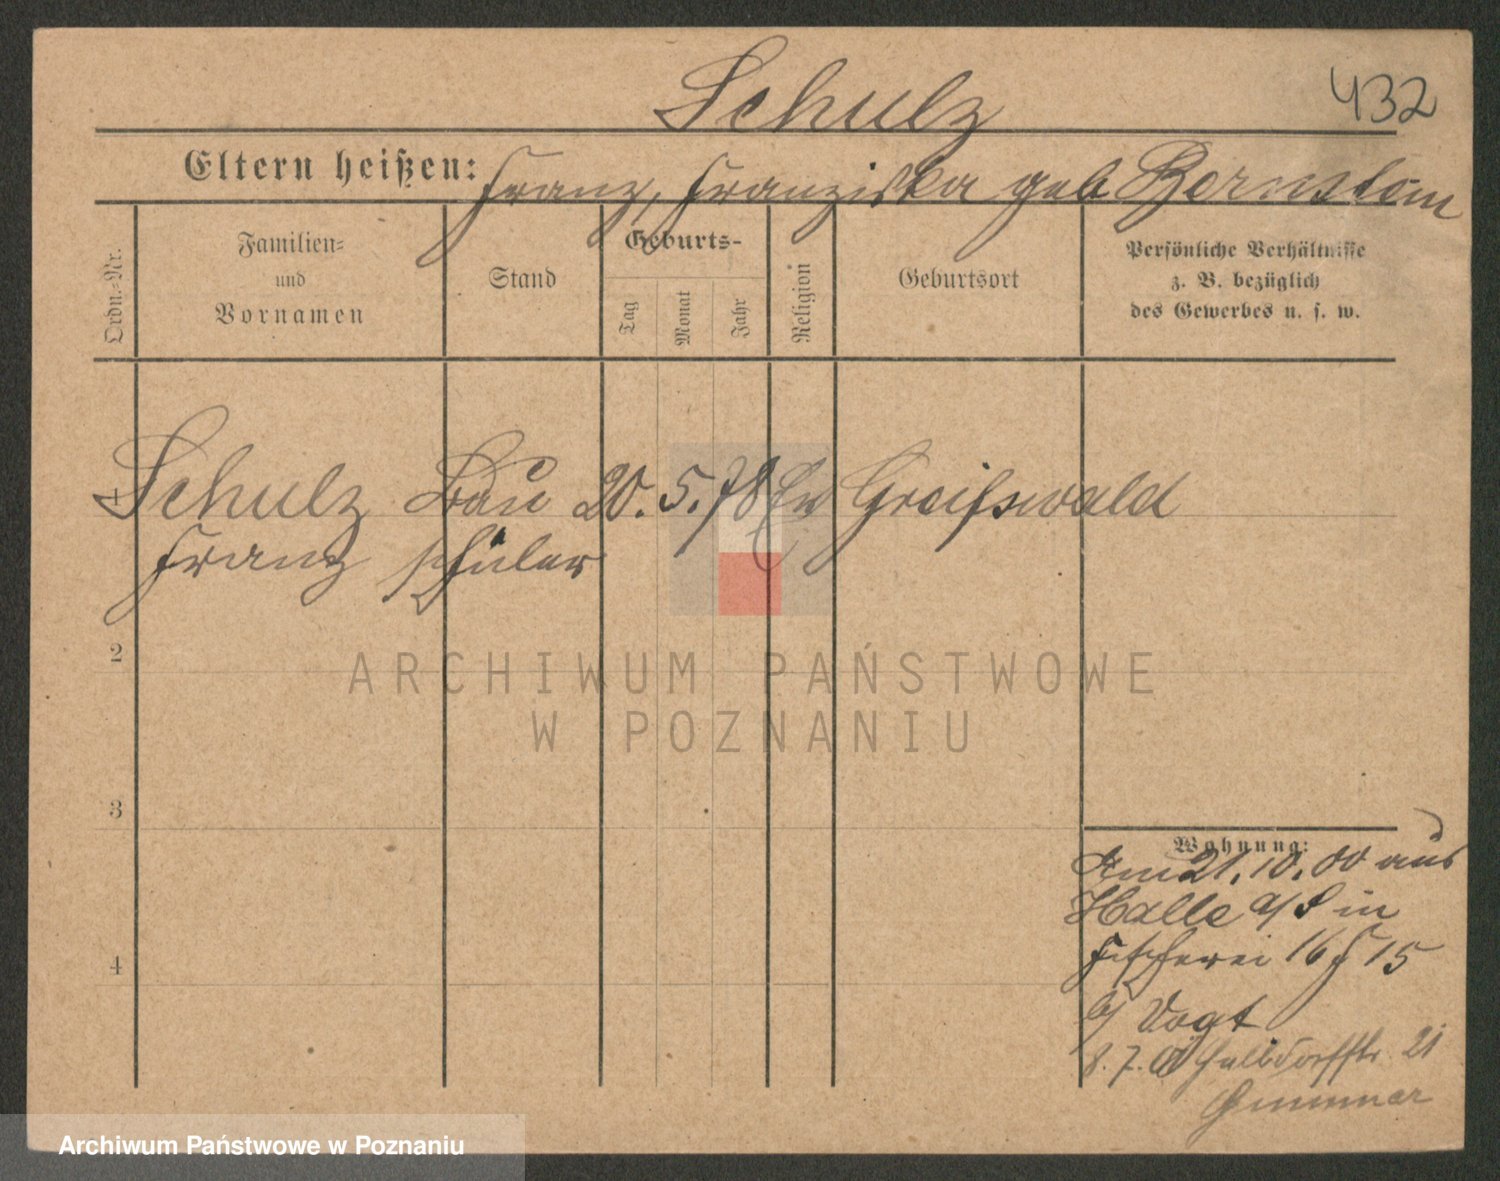 432
Schulz
Eltern heißen: Franz, Franziska geb Bornstein
Ordn.-Nr.
Familien-
und
Vornamen
Stand
Geburts-
Tag
Monat
Jahr
Religion
Geburtsort
Persönliche Verhältnisse
z. B. bezüglich
des Gewerbes u. s. w.
1 Schulz Bau 20. 5. 78 Ev Greifswald
Franz schüler
2
3
4
Wohnung:
Am 21. 10. 00 aus
Halle a/S in
Fischerei 16 15
b/ Vogt
8. 7. 01 Halbdorfstr. 21
ARCHIWUM PAŃSTWOWE
W POZNANIU
Archiwum Państwowe w Poznaniu